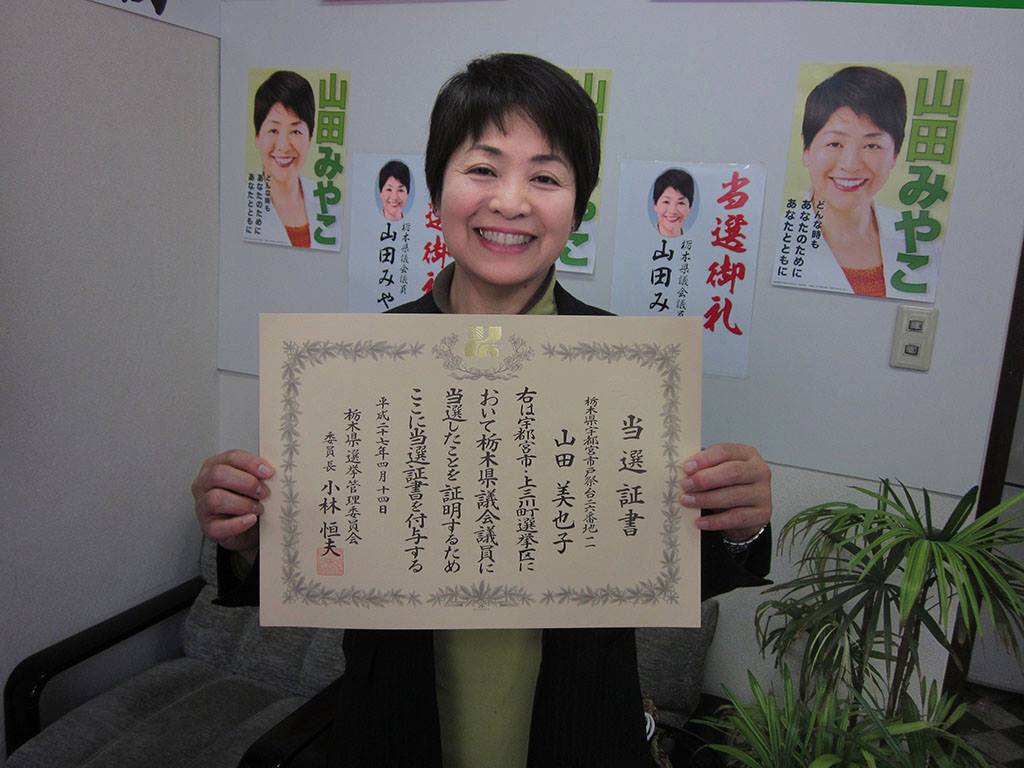 山田みやこ
どんな時も
あなたのために
あなたとともに
選御礼
栃木県議会議員
山田みや
山
こ
当選御礼
栃木県議会議員
山田み
山田みやこ
どんな時も
あなたのために
あなたとともに
当選証書
栃木県宇都宮市戸祭台二六番地一二
山田美也子
右は宇都宮市・上三川町選挙区に
おいて栃木県議会議員に
当選したことを証明するため
ここに当選証書を付与する
平成二十七年四月十四日
栃木県選挙管理委員会
委員長 小林恒夫